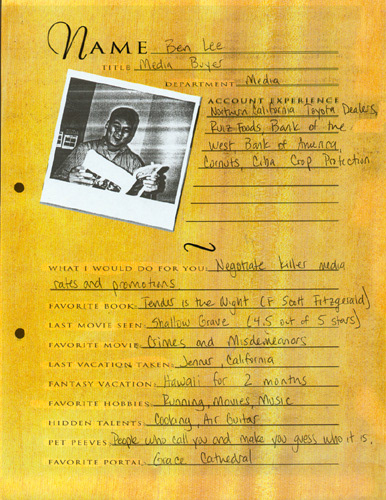 NAME Ben Lee
TITLE Media Buyer
DEPARTMENT Media
ACCOUNT EXPERIENCE
Northern California Toyota Dealers,
Ruiz Foods, Bank of the
West Bank of America,
Cornuts, Ciba Crop Protection
WHAT I WOULD DO FOR YOU: Negotiate killer media
rates and promotions
FAVORITE BOOK: Tender is the Night (F Scott Fitzgerald)
LAST MOVIE SEEN: Shallow Grave (4.5 out of 5 stars)
FAVORITE MOVIE: Crimes and Misdemeanors
LAST VACATION TAKEN: Jenner, California
FANTASY VACATION: Hawaii for 2 months
FAVORITE HOBBIES: Running, Movies, Music
HIDDEN TALENTS: Cooking, Air Guitar
PET PEEVES: People who call you and make you guess who it is.
FAVORITE PORTAL: Grace Cathedral